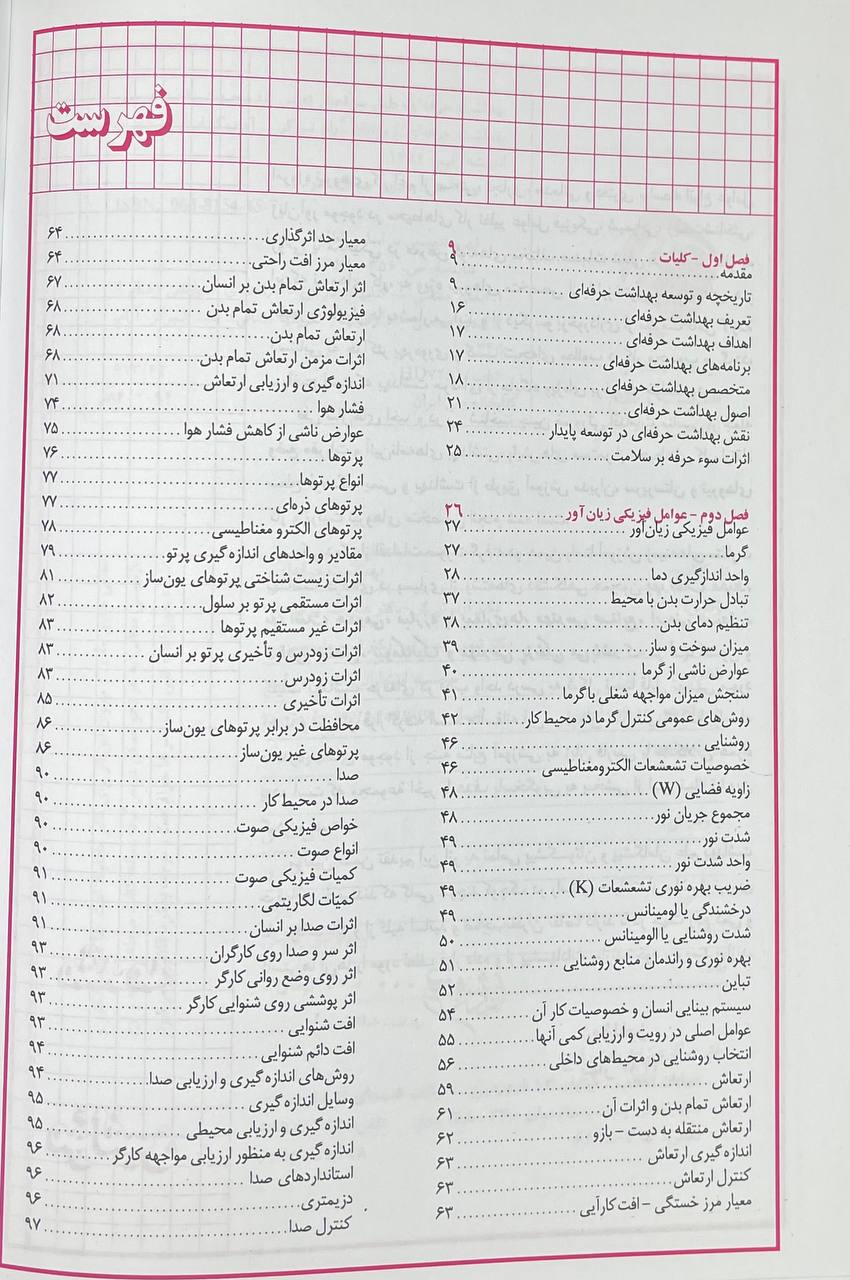 فهرست
فصل اول - کلیات ..... ۹
مقدمه ..... ۹
تاریخچه و توسعه بهداشت حرفه‌ای ..... ۹
تعریف بهداشت حرفه‌ای ..... ۱۶
اهداف بهداشت حرفه‌ای ..... ۱۷
برنامه‌های بهداشت حرفه‌ای ..... ۱۷
متخصص بهداشت حرفه‌ای ..... ۱۸
اصول بهداشت حرفه‌ای ..... ۲۱
نقش بهداشت حرفه‌ای در توسعه پایدار ..... ۲۴
اثرات سوء حرفه بر سلامت ..... ۲۵
فصل دوم - عوامل فیزیکی زیان آور ..... ۲۶
عوامل فیزیکی زیان‌آور ..... ۲۷
گرما ..... ۲۷
واحد اندازگیری دما ..... ۲۸
تبادل حرارت بدن با محیط ..... ۳۷
تنظیم دمای بدن ..... ۳۸
میزان سوخت و ساز ..... ۳۹
عوارض ناشی از گرما ..... ۴۰
سنجش میزان مواجهه شغلی با گرما ..... ۴۱
روش‌های عمومی کنترل گرما در محیط کار ..... ۴۲
روشنایی ..... ۴۶
خصوصیات تشعشعات الکترومغناطیسی ..... ۴۶
زاویه فضایی (W) ..... ۴۸
مجموع جریان نور ..... ۴۸
شدت نور ..... ۴۹
واحد شدت نور ..... ۴۹
ضریب بهره نوری تشعشعات (K) ..... ۴۹
درخشندگی یا لومینانس ..... ۴۹
شدت روشنایی یا الومینانس ..... ۵۰
بهره نوری و راندمان منابع روشنایی ..... ۵۱
تباین ..... ۵۲
سیستم بینایی انسان و خصوصیات کار آن ..... ۵۴
عوامل اصلی در رویت و ارزیابی کمی آنها ..... ۵۵
انتخاب روشنایی در محیط‌های داخلی ..... ۵۶
ارتعاش ..... ۵۹
ارتعاش تمام بدن و اثرات آن ..... ۶۱
ارتعاش منتقله به دست - بازو ..... ۶۲
اندازه گیری ارتعاش ..... ۶۳
کنترل ارتعاش ..... ۶۳
معیار مرز خستگی - افت کارآیی ..... ۶۳
معیار حد اثرگذاری ..... ۶۴
معیار مرز افت راحتی ..... ۶۴
اثر ارتعاش تمام بدن بر انسان ..... ۶۷
فیزیولوژی ارتعاش تمام بدن ..... ۶۸
ارتعاش تمام بدن ..... ۶۸
اثرات مزمن ارتعاش تمام بدن ..... ۶۸
اندازه گیری و ارزیابی ارتعاش ..... ۷۱
فشار هوا ..... ۷۴
عوارض ناشی از کاهش فشار هوا ..... ۷۵
پرتوها ..... ۷۶
انواع پرتوها ..... ۷۷
پرتوهای ذره‌ای ..... ۷۷
پرتوهای الکترو مغناطیسی ..... ۷۸
مقادیر و واحدهای اندازه گیری پرتو ..... ۷۹
اثرات زیست شناختی پرتوهای یون‌ساز ..... ۸۱
اثرات مستقمی پرتو بر سلول ..... ۸۲
اثرات غیر مستقیم پرتوها ..... ۸۳
اثرات زودرس و تأخیری پرتو بر انسان ..... ۸۳
اثرات زودرس ..... ۸۳
اثرات تأخیری ..... ۸۵
محافظت در برابر پرتوهای یون‌ساز ..... ۸۶
پرتوهای غیر یون‌ساز ..... ۸۶
صدا ..... ۹۰
صدا در محیط کار ..... ۹۰
خواص فیزیکی صوت ..... ۹۰
انواع صوت ..... ۹۰
کمیات فیزیکی صوت ..... ۹۱
کمیّات لگاریتمی ..... ۹۱
اثرات صدا بر انسان ..... ۹۱
اثر سر و صدا روی کارگران ..... ۹۳
اثر روی وضع روانی کارگر ..... ۹۳
اثر پوششی روی شنوایی کارگر ..... ۹۳
افت شنوایی ..... ۹۳
افت دائم شنوایی ..... ۹۴
روش‌های اندازه گیری و ارزیابی صدا ..... ۹۴
وسایل اندازه گیری ..... ۹۵
اندازه گیری و ارزیابی محیطی ..... ۹۵
اندازه گیری به منظور ارزیابی مواجهه کارگر ..... ۹۶
استانداردهای صدا ..... ۹۶
دزیمتری ..... ۹۶
کنترل صدا ..... ۹۷